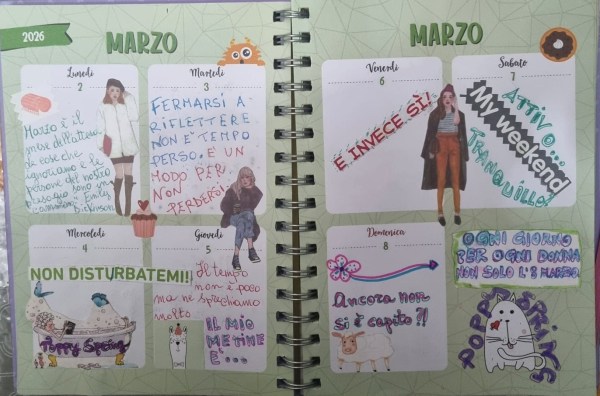 2026
MARZO
Lunedì
2
Marzo è il
mese dell'attesa
le cose che
ignoriamo e le
persone del nostro
presagio sono in
cammino" Emily
Dickinson
Martedì
3
FERMARSI A
RIFLETTERE
NON E' TEMPO
PERSO. E' UN
MODO PER
NON
PERDERSI.
Mercoledì
4
NON DISTURBATEMI!!
Poppy Spring
Giovedì
5
Il tempo
non è poco
ma ne sprechiamo
molto
IL MIO
METIME
E'...
MARZO
Venerdì
6
E INVECE SÌ!
Sabato
7
ATTIVO...
My weekend
TRANQUILLO?
Domenica
8
Ancora non
si è capito?!
OGNI GIORNO
PER OGNI DONNA
NON SOLO L'8 MARZO
POPPY SPRING